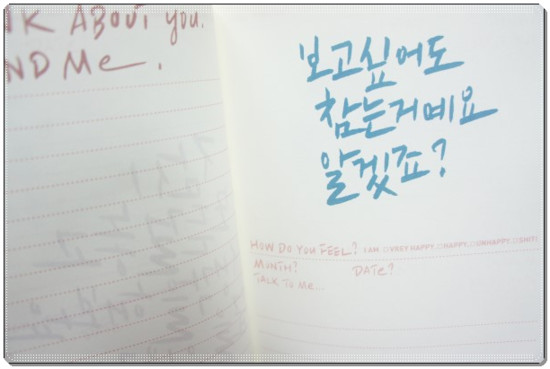 NK ABOUT YOU.
ND Me.
보고싶어도
참는거예요
알겠죠?
HOW DO YOU FEEL? I AM □VERY HAPPY, □HAPPY, □UNHAPPY,
MONTH? DATE?
TALK TO Me...